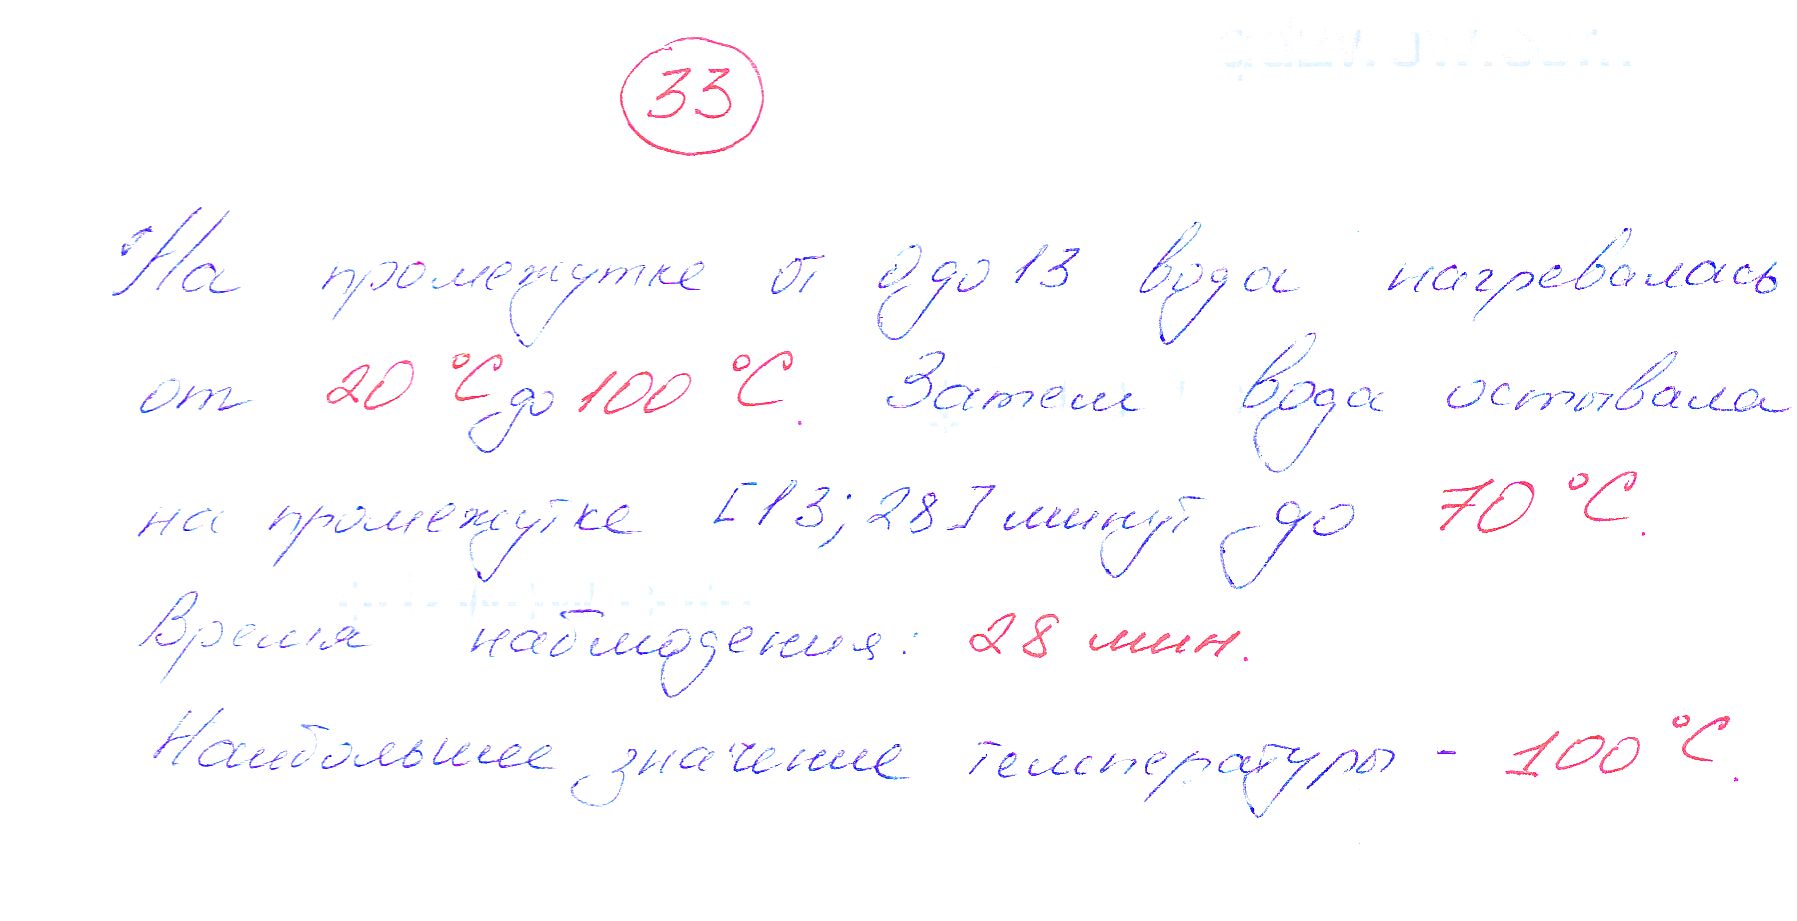 33
На промежутке от 0 до 13 вода нагревалась
от 20 °C до 100 °C. Затем вода остывала
на промежутке [13; 28] минут до 70 °C.
Время наблюдения: 28 мин.
Наибольшее значение температуры - 100 °C.